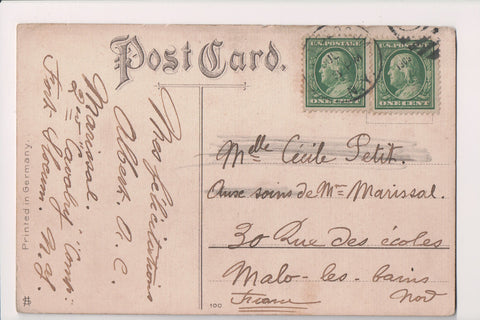 Post Card.
U.S. POSTAGE
ONE CENT
U.S. POSTAGE
ONE CENT
Mes félicitations
Albert A. C.
Marissal.
Cavalry
Fort Slocum. N.Y.
Melle Cécile Petit.
Aux soins de Me Marissal.
30 Rue des écoles
Malo-les-bains
Nord
France
Printed in Germany.
100